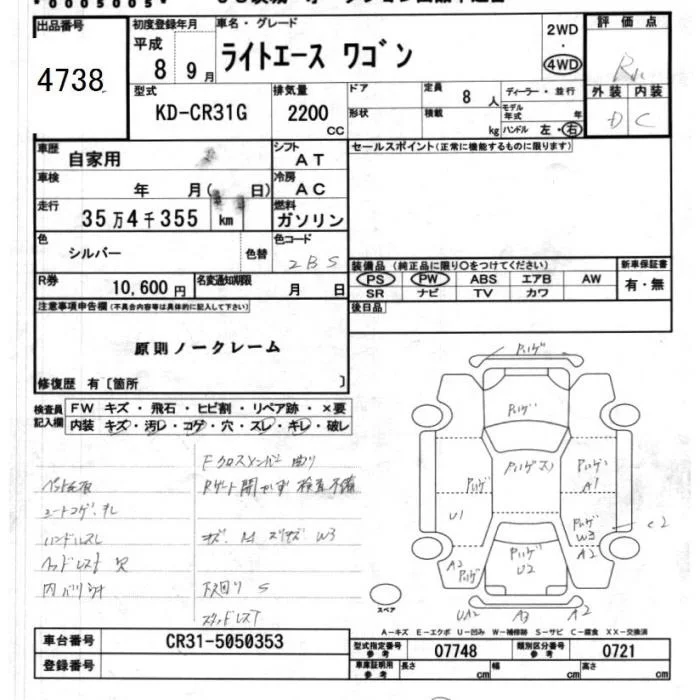 0005005
出品番号
4738
初度登録年月
平成
8 9 月
車名・グレード
ライトエース ワゴン
2WD
・
4WD
評価点
外装 内装
D C
型式
KD-CR31G
排気量
2200
CC
ドア
形状
定員
8 人
積載
kg
ディーラー・並行
モデル年式 年
ハンドル 左・右
車歴
自家用
シフト
AT
車検
年 月( 日)
冷房
AC
走行
35万4千355 km
燃料
ガソリン
色
シルバー
色替
色コード
2BS
R券
10,600 円
名変通知期限
月 日
セールスポイント(正常に機能するものに限ります)
装備品 (純正品に限り○をつけてください)
PS PW ABS エアB AW
SR ナビ TV カワ
新車保証書
有・無
後日品
注意事項申告欄(不具合内容等は具体的に記入して下さい)
原則ノークレーム
修復歴 有〔箇所 〕
検査員記入欄
FW キズ・飛石・ヒビ割・リペア跡・×要
内装 キズ・汚レ・コゲ・穴・スレ・キレ・破レ
Fクロスメンバー 曲リ
Rゲート開かず 検査不備
シートコゲ、キレ
ハンドルスレ
ヘッドレスト 欠
キズ、M スリキズ W3
下回り S
スタッドレスT
Pハゲ
Pハゲ
Pハゲ
Pハゲ
Pハゲ
A1
U1
Pハゲ
W3
A2
C2
A2
Pハゲ
Pハゲ
U2
UA2 A3 A2
スペア
A-キズ E-エクボ U-凹み W-補修跡 S-サビ C-腐食 XX-交換済
車台番号
CR31-5050353
登録番号
型式指定番号
参考
07748
類別区分番号
参考
0721
車庫証明用
参考
長さ cm
幅 cm
高さ cm